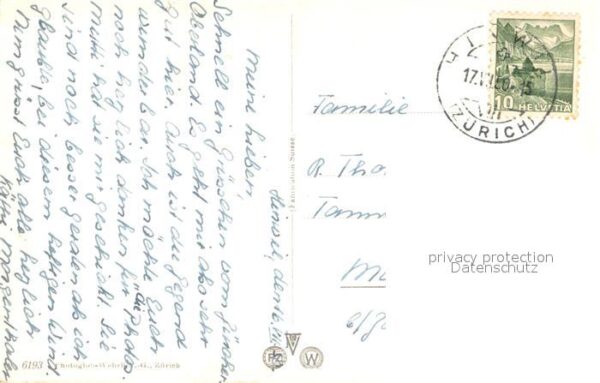 Hinwil, den
Meine Lieben,
Schnell ein Grüsschen vom Zürcher
Oberland. Es geht mir also sehr
gut hier. Auch ist die Gegend
wunderbar. Ich möchte Euch
noch herzlich danken für die Photos.
Mutti hat sie mir geschickt. Sie
sind noch besser geraten als ich
glaubte, bei diesem heftigen Wind.
Nun grüsst Euch alle herzlich
Käthi Morgenthaler
6193 Photoglob-Wehrli A.G., Zürich
PZ
W
Familie
R. Tho
Tann
Ma
b/
HINWIL
(ZÜRICH)
10 HELVETIA
privacy protection
Datenschutz